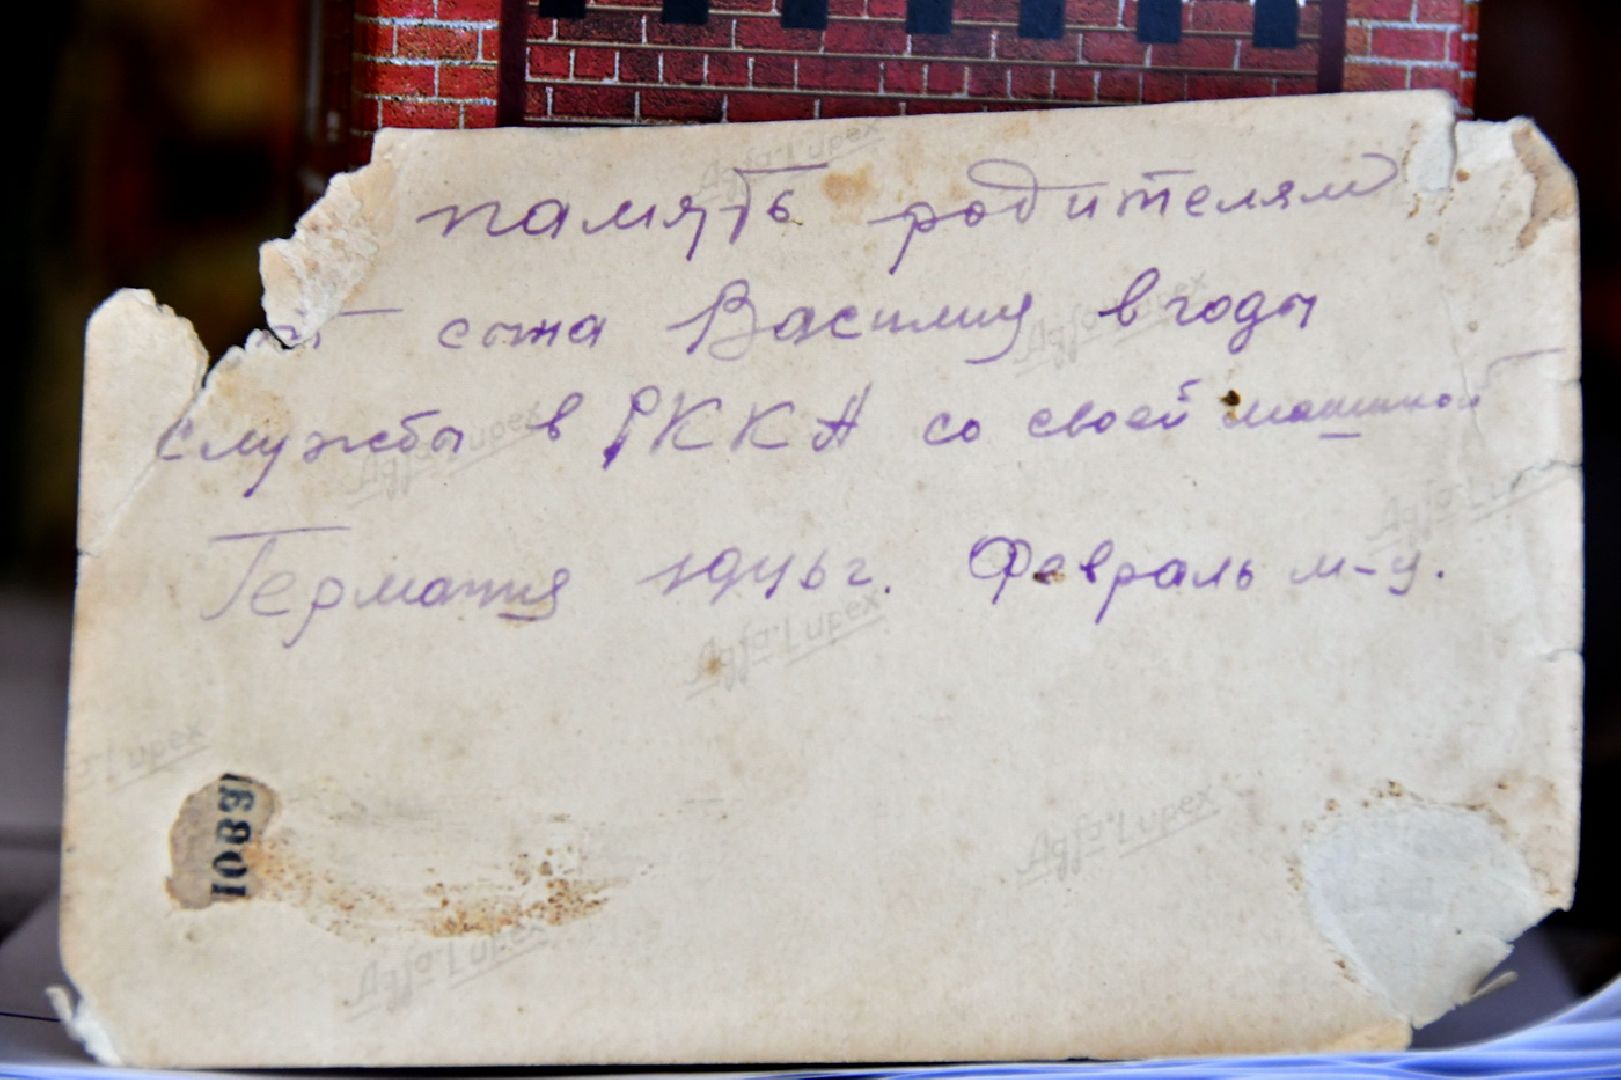 память родителям
от сына Василия в годы
службы в РККА со своей машиной
Германия 1946 г. Февраль м-ц.
Agfa-Lupex
Agfa-Lupex
Agfa-Lupex
Agfa-Lupex
Agfa-Lupex
Lupex
Agfa-Lupex
Agfa-Lupex
1083